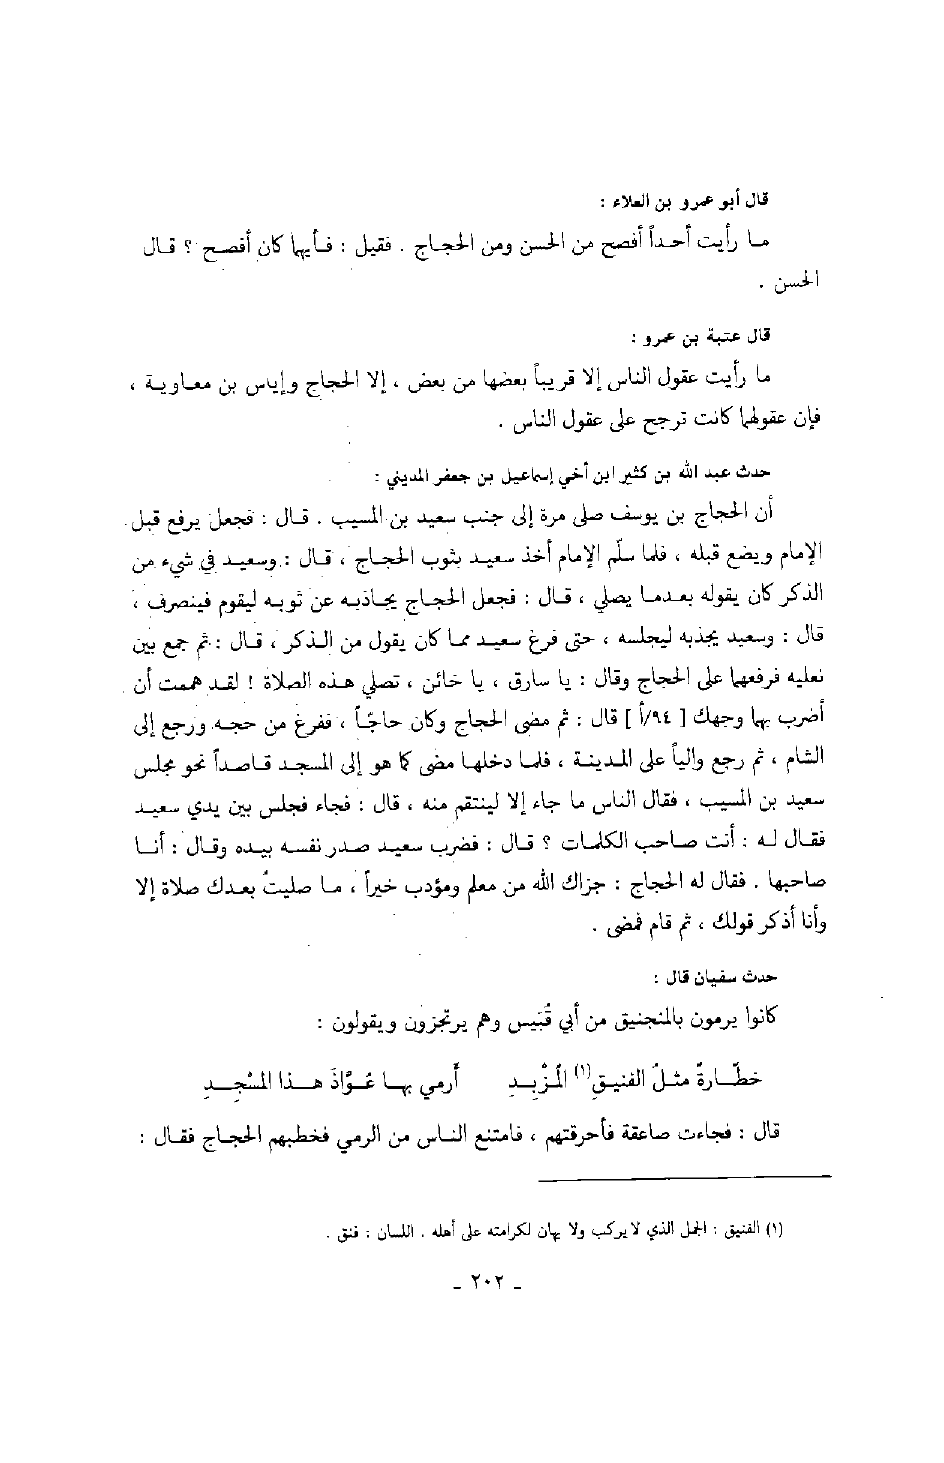 قال أبو عمرو بن العلاء :
ما رأيت أحداً أفصح من الحسن ومن الحجاج . فقيل : فأيها كان أفصح ؟ قال
الحسن .
قال عتبة بن عمرو :
ما رأيت عقول الناس إلا قريباً بعضها من بعض ، إلا الحجاج وإياس بن معاوية ،
فإن عقولها كانت ترجح على عقول الناس .
حدث عبد الله بن كثير ابن أخي إسماعيل بن جعفر المديني :
أن الحجاج بن يوسف صلى مرة إلى جنب سعيد بن المسيب . قال : فجعل يرفع قبل
الإمام ويضع قبله ، فلما سلّم الإمام أخذ سعيد بثوب الحجاج ، قال : وسعيد في شيء من
الذكر كان يقوله بعدما يصلي ، قال : فجعل الحجاج يجاذبه عن ثوبه ليقوم فينصرف ،
قال : وسعيد يجذبه ليجلسه ، حتى فرغ سعيد مما كان يقول من الذكر ، قال : ثم جمع بين
نعليه فرفعها على الحجاج وقال : يا سارق ، يا خائن ، تصلي هذه الصلاة ! لقد هممت أن
أضرب بها وجهك [ ٩٤/أ ] قال : ثم مضى الحجاج وكان حاجّاً ، ففرغ من حجه ورجع إلى
الشام ، ثم رجع والياً على المدينة ، فلما دخلها مضى كما هو إلى المسجد قاصداً نحو مجلس
سعيد بن المسيب ، فقال الناس ما جاء إلا لينتقم منه ، قال : فجاء فجلس بين يدي سعيد
فقال له : أنت صاحب الكلمات ؟ قال : فضرب سعيد صدر نفسه بيده وقال : أنا
صاحبها . فقال له الحجاج : جزاك الله من معلم ومؤدب خيراً ، ما صليتُ بعدك صلاة إلا
وأنا أذكر قولك ، ثم قام فمضى .
حدث سفيان قال :
كانوا يرمون بالمنجنيق من أبي قُبَيس وهم يرتجزون ويقولون :
خطّارةٌ مثلُ الفنيقِ(١) المُزْبِدِ أرمي بها عُوّاذَ هذا المسْجِدِ
قال : فجاءت صاعقة فأحرقتهم ، فامتنع الناس من الرمي فخطبهم الحجاج فقال :
(١) الفنيق : الجمل الذي لا يركب ولا يهان لكرامته على أهله . اللسان : فنق .
- ٢٠٢ -